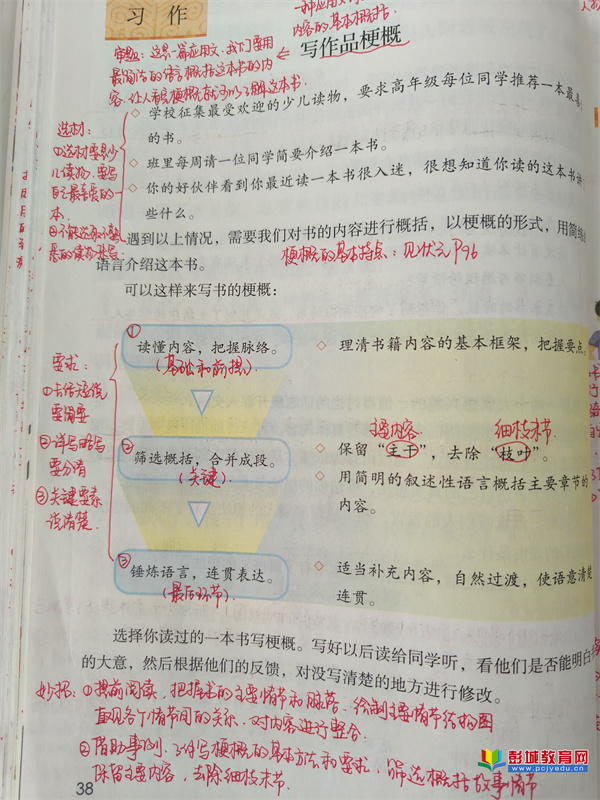 习 作
一种应用文
内容的基本概括.
审题：这是一篇应用文.我们要用
写作品梗概
最简洁的语言概括这本书的内
容.让人看完梗概就可以了解这本书.
学校征集最受欢迎的少儿读物，要求高年级每位同学推荐一本最喜
的书。
班里每周请一位同学简要介绍一本书。
你的好伙伴看到你最近读一本书很入迷，很想知道你读的这本书讲
些什么。
选材：
①选材要是少
儿读物.要写
自己最喜爱的一
本.
遇到以上情况，需要我们对书的内容进行概括，以梗概的形式，用简练
语言介绍这本书。
梗概的基本特点：见状元P96
可以这样来写书的梗概：
①
读懂内容，把握脉络。
(基础和前提)
理清书籍内容的基本框架，把握要点。
要求：
①去信短传
要简要
②详写略写
要分清
③关键要素
说清楚.
主要内容
细枝末节
②
筛选概括，合并成段。
(关键)
保留“主干”，去除“枝叶”。
用简明的叙述性语言概括主要章节的
内容。
③
锤炼语言，连贯表达。
(最后环节)
适当补充内容，自然过渡，使语意清楚
连贯。
选择你读过的一本书写梗概。写好以后读给同学听，看他们是否能明白
的大意，然后根据他们的反馈，对没写清楚的地方进行修改。
妙招：①提前阅读，把握书的主要情节和脉络，绘制主要情节结构图
直观各个情节间的关系，对内容进行整合.
②借助事例，习得写梗概的基本方法和要求，筛选概括故事情节
保留主要内容，去除细枝末节.
38
彭城教育网
www.pcjyedu.cn